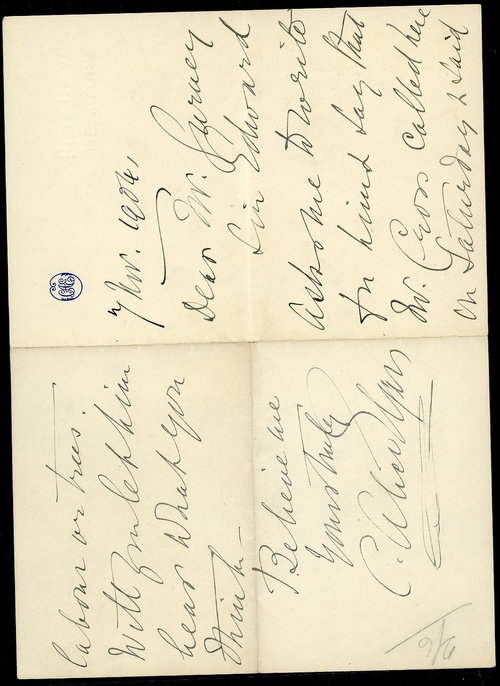 7 Nov.
Dear Mr. Gurney
Sir Edward
asks me to write
for him & say that
Mr. Cross called here
on Saturday & said
labour or trees.
Will you let him
hear what you
think —
Believe me
Yours truly
C. Alice Elgar